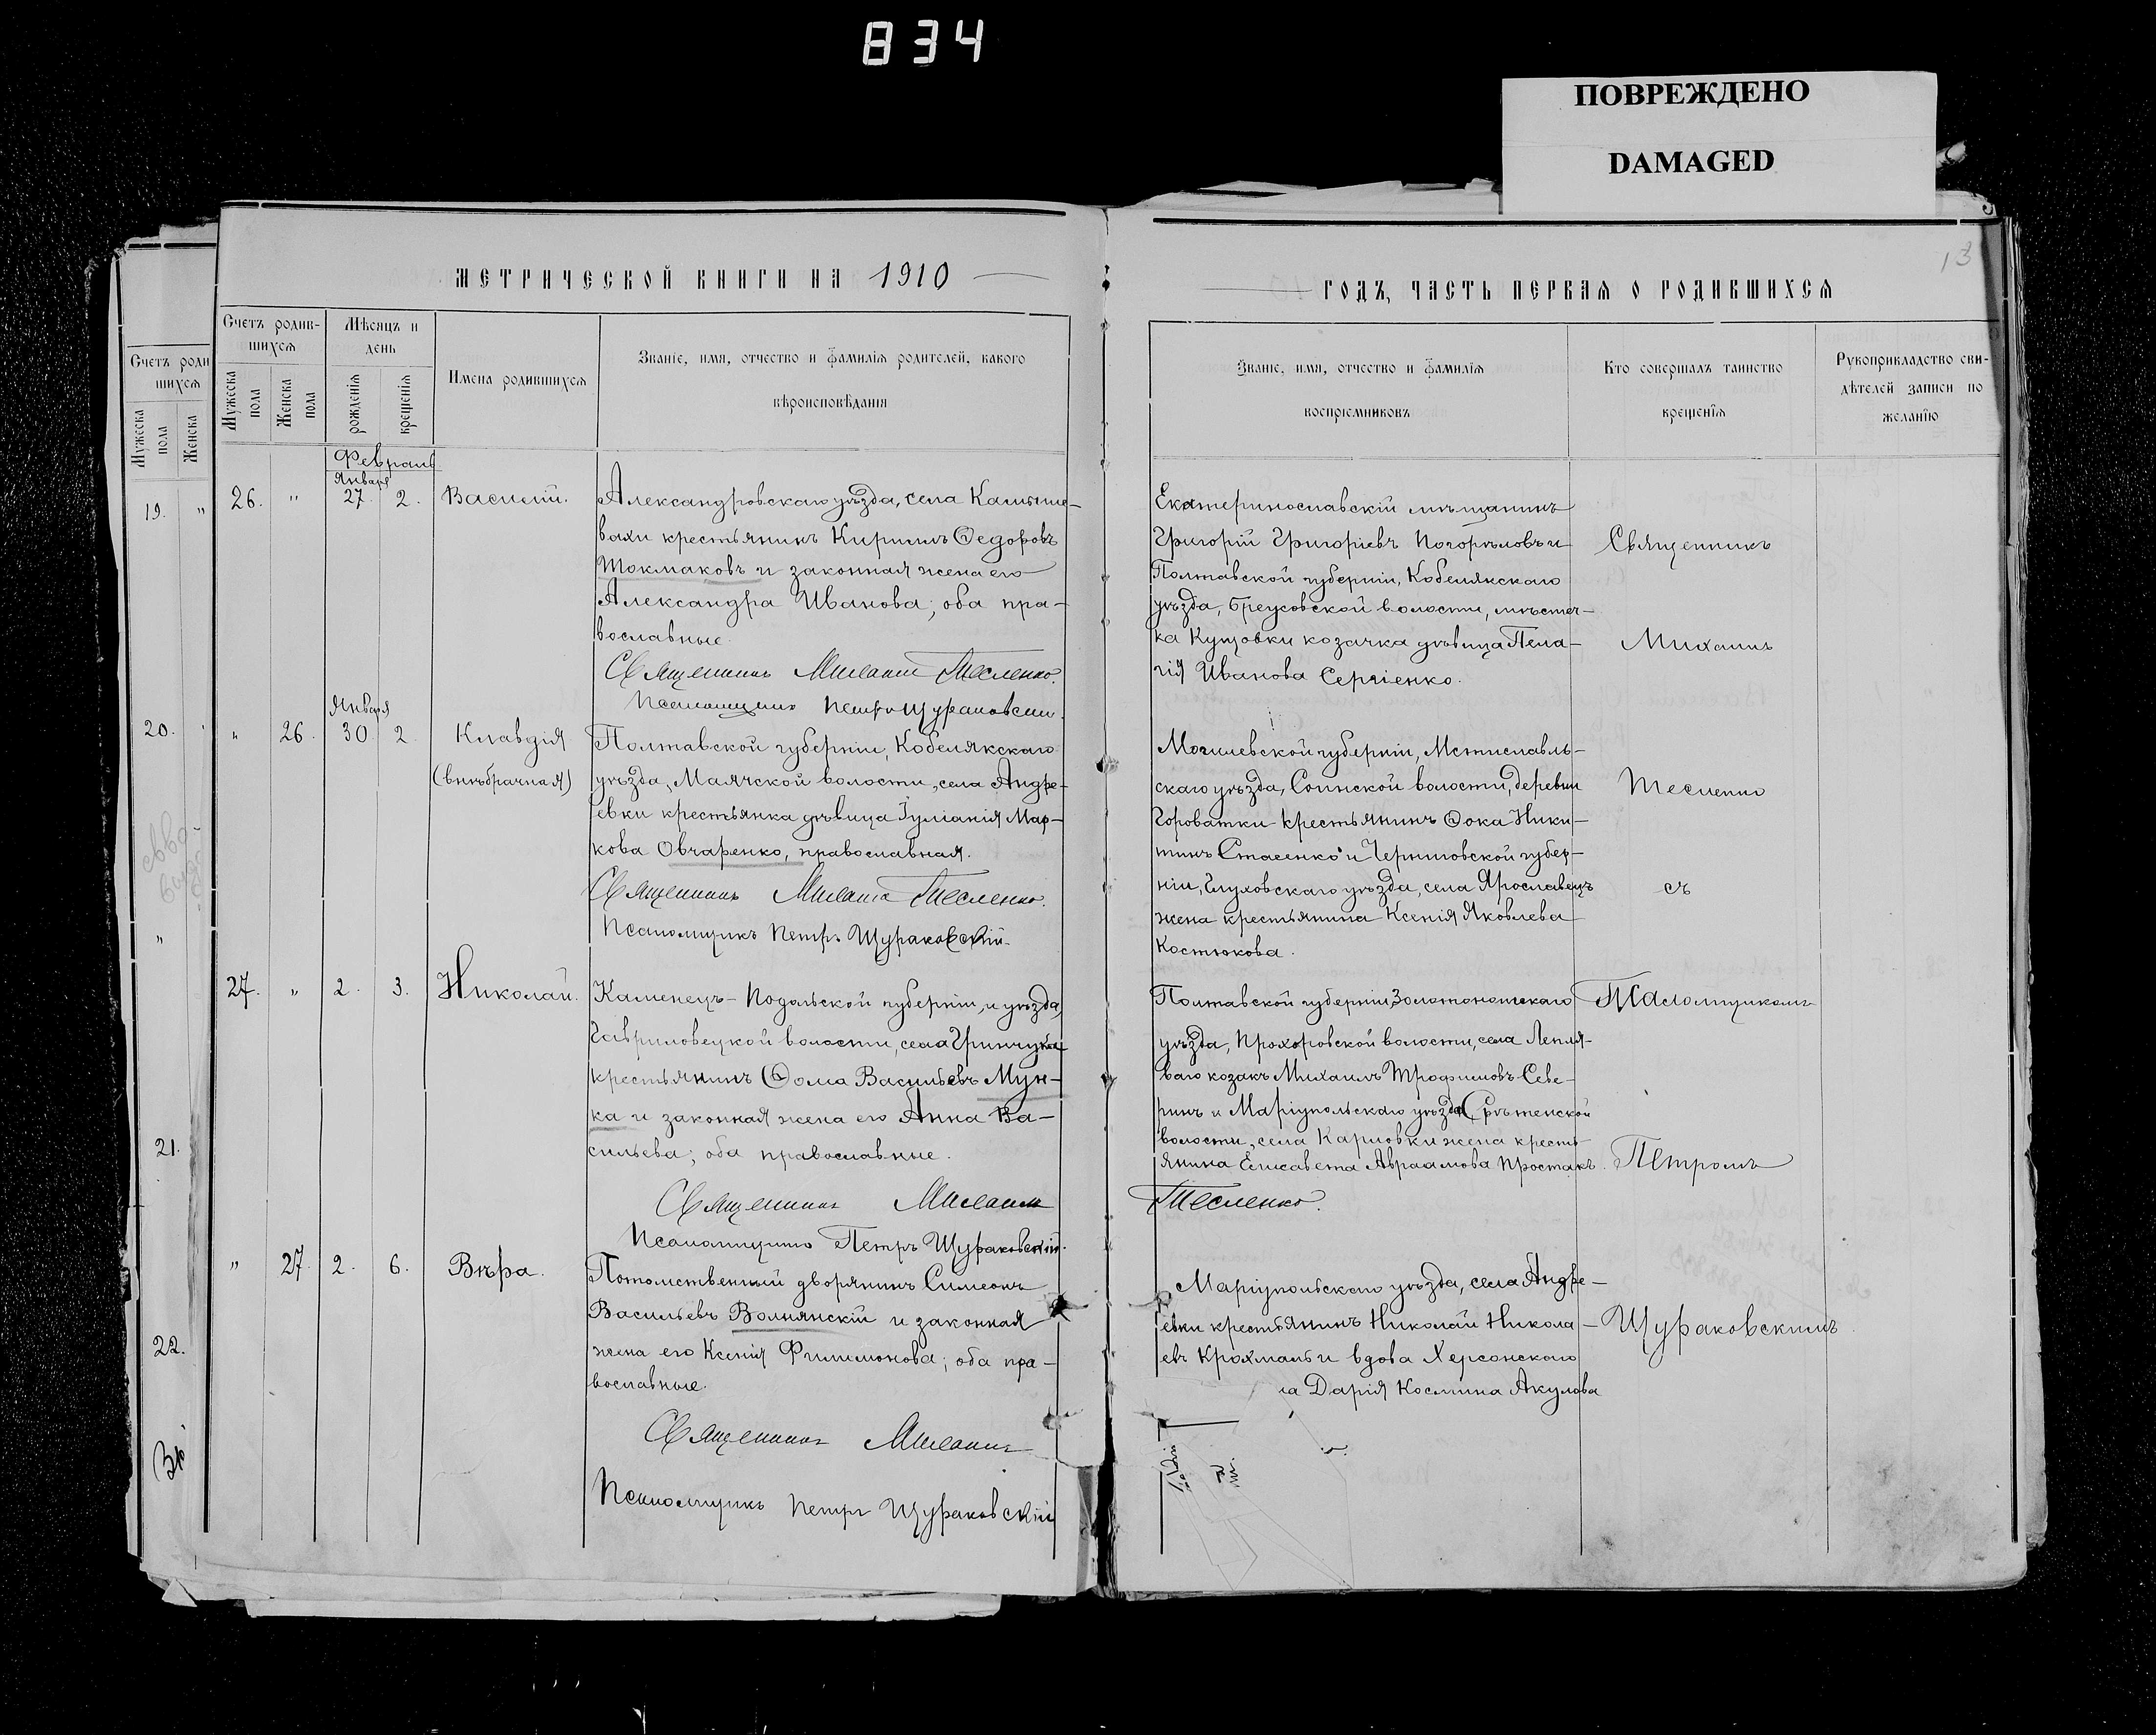 834
ПОВРЕЖДЕНО
DAMAGED
13
МЕТРИЧЕСКОЙ КНИГИ НА 1910
ГОДЪ, ЧАСТЬ ПЕРВАЯ О РОДИВШИХСЯ
Счетъ роди
шихся
Мужеска пола
Женска
Счетъ родив-
шихся
Мужеска пола
Женска пола
Мѣсяцъ и
день
рожденія
крещенія
Имена родившихся
Званіе, имя, отчество и фамилія родителей, какого
вѣроисповѣданія
Званіе, имя, отчество и фамилія
воспріемниковъ
Кто совершалъ таинство
крещенія
Рукоприкладство сви-
дѣтелей записи по
желанію
19. "
20.
"
21.
22.
Февраль
Января
26. " 27. 2. Василій.
Александровскаго уѣзда, села Камыше-
вахи крестьянинъ Кириллъ Ѳедоровъ
Токмаковъ и законная жена его
Александра Иванова; оба пра-
вославные.
Священникъ Михаилъ Тесленко.
Псаломщикъ Петръ Щураковскій.
Екатеринославскій мѣщанинъ
Григорій Григоріевъ Погорѣловъ и
Полтавской губерніи, Кобелякскаго
уѣзда, Бреусовской волости, мѣстеч-
ка Куцовки козачка дѣвица Пела-
гія Иванова Сергіенко.
Священникъ
Михаилъ
Января
" 26. 30 2 Клавдія
(внѣбрачная)
Полтавской губерніи, Кобелякскаго
уѣзда, Маячской волости, села Андре-
евки крестьянка дѣвица Іуліанія Мар-
кова Овчаренко, православная.
Священникъ Михаилъ Тесленко.
Псаломщикъ Петръ Щураковскій.
Могилевской губерніи, Мстиславль-
скаго уѣзда, волости, деревни
крестьянинъ Ѳока Ники-
тинъ Стасенко и Черниговской губер-
ніи, Глуховскаго уѣзда, села Ярославецъ
жена крестьянина Ксенія Яковлева
Костюкова.
Тесленко
съ
27. " 2. 3. Николай.
Каменецъ-Подольской губерніи, и уѣзда,
Гавриловецкой волости, села
крестьянинъ Ѳома Васильевъ Мун-
ка и законная жена его Анна Ва-
сильева; оба православные.
Священникъ Михаилъ
Псаломщикъ Петръ Щураковскій.
Полтавской губерніи, Золотоношскаго
уѣзда, Прохоровской волости, села Лепля-
ваго козакъ Михаилъ Трофимовъ Севе-
ринъ и Маріупольскаго уѣзда Срѣтенской
волости, села Карловки жена кресть-
янина Елисавета Авраамова Простакъ.
Тесленко.
Псаломщикомъ
Петромъ
" 27. 2. 6. Вѣра.
Потомственный дворянинъ Симеонъ
Васильевъ Волнянскій и законная
жена его Ксенія Филимонова; оба пра-
вославные.
Священникъ Михаилъ
Псаломщикъ Петръ Щураковскій
Маріупольскаго уѣзда, села Андре-
евки крестьянинъ Николай Никола-
евъ Крохмаль и вдова Херсонскаго
Дарія Космина Акулова
Щураковскимъ